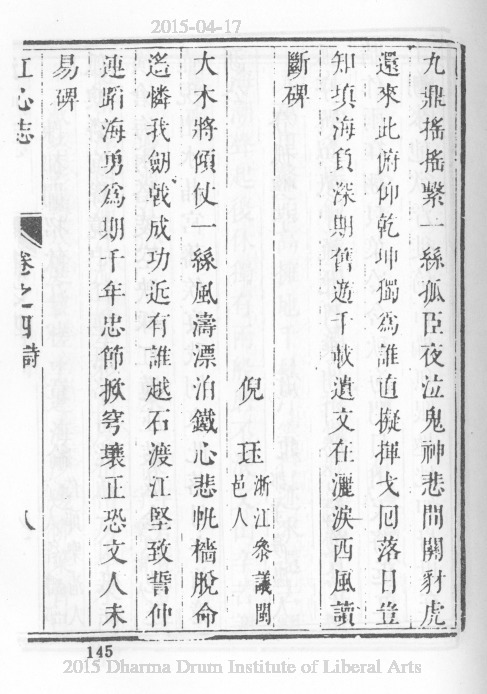 2015-04-17
九鼎搖搖繫一綫孤臣夜泣鬼神悲間關豺虎
還來此俯仰乾坤獨為誰直擬揮戈回落日豈
知填海負深期舊遊千載遺文在灑淚西風讀
斷碑
倪珏浙江叅議閩
邑人
大木將傾仗一綫風濤漂泊鐵心悲帆檣脫命
遙憐我劒戟成功近有誰越石渡江堅致誓仲
連蹈海勇為期千年忠節掀穹壤正恐文人未
易碑
江心志
卷之四詩
八
145
2015 Dharma Drum Institute of Liberal Arts